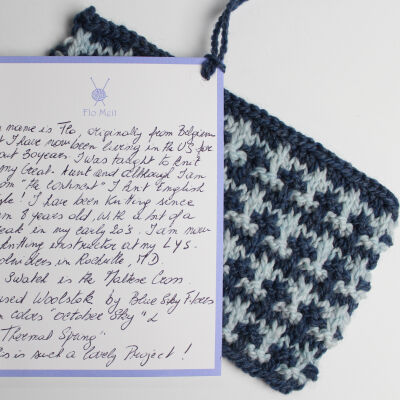 Flo Meit
name is Flo, originally from Belgium
I have now been living in the US for
out 30 years. I was taught to knit
my Great-Aunt and although I am
om "the continent" I knit English
yle! I have been knitting since
m 8 years old, with a bit of a
eak in my early 20's. I am now
knitting instructor at my LYS.
in Rockville, MD.
Swatch is the Maltese Cross.
used Woolstok by Blue Sky Fibers
n colors "October Sky" &
Thermal Spring"
is is such a lovely Project!